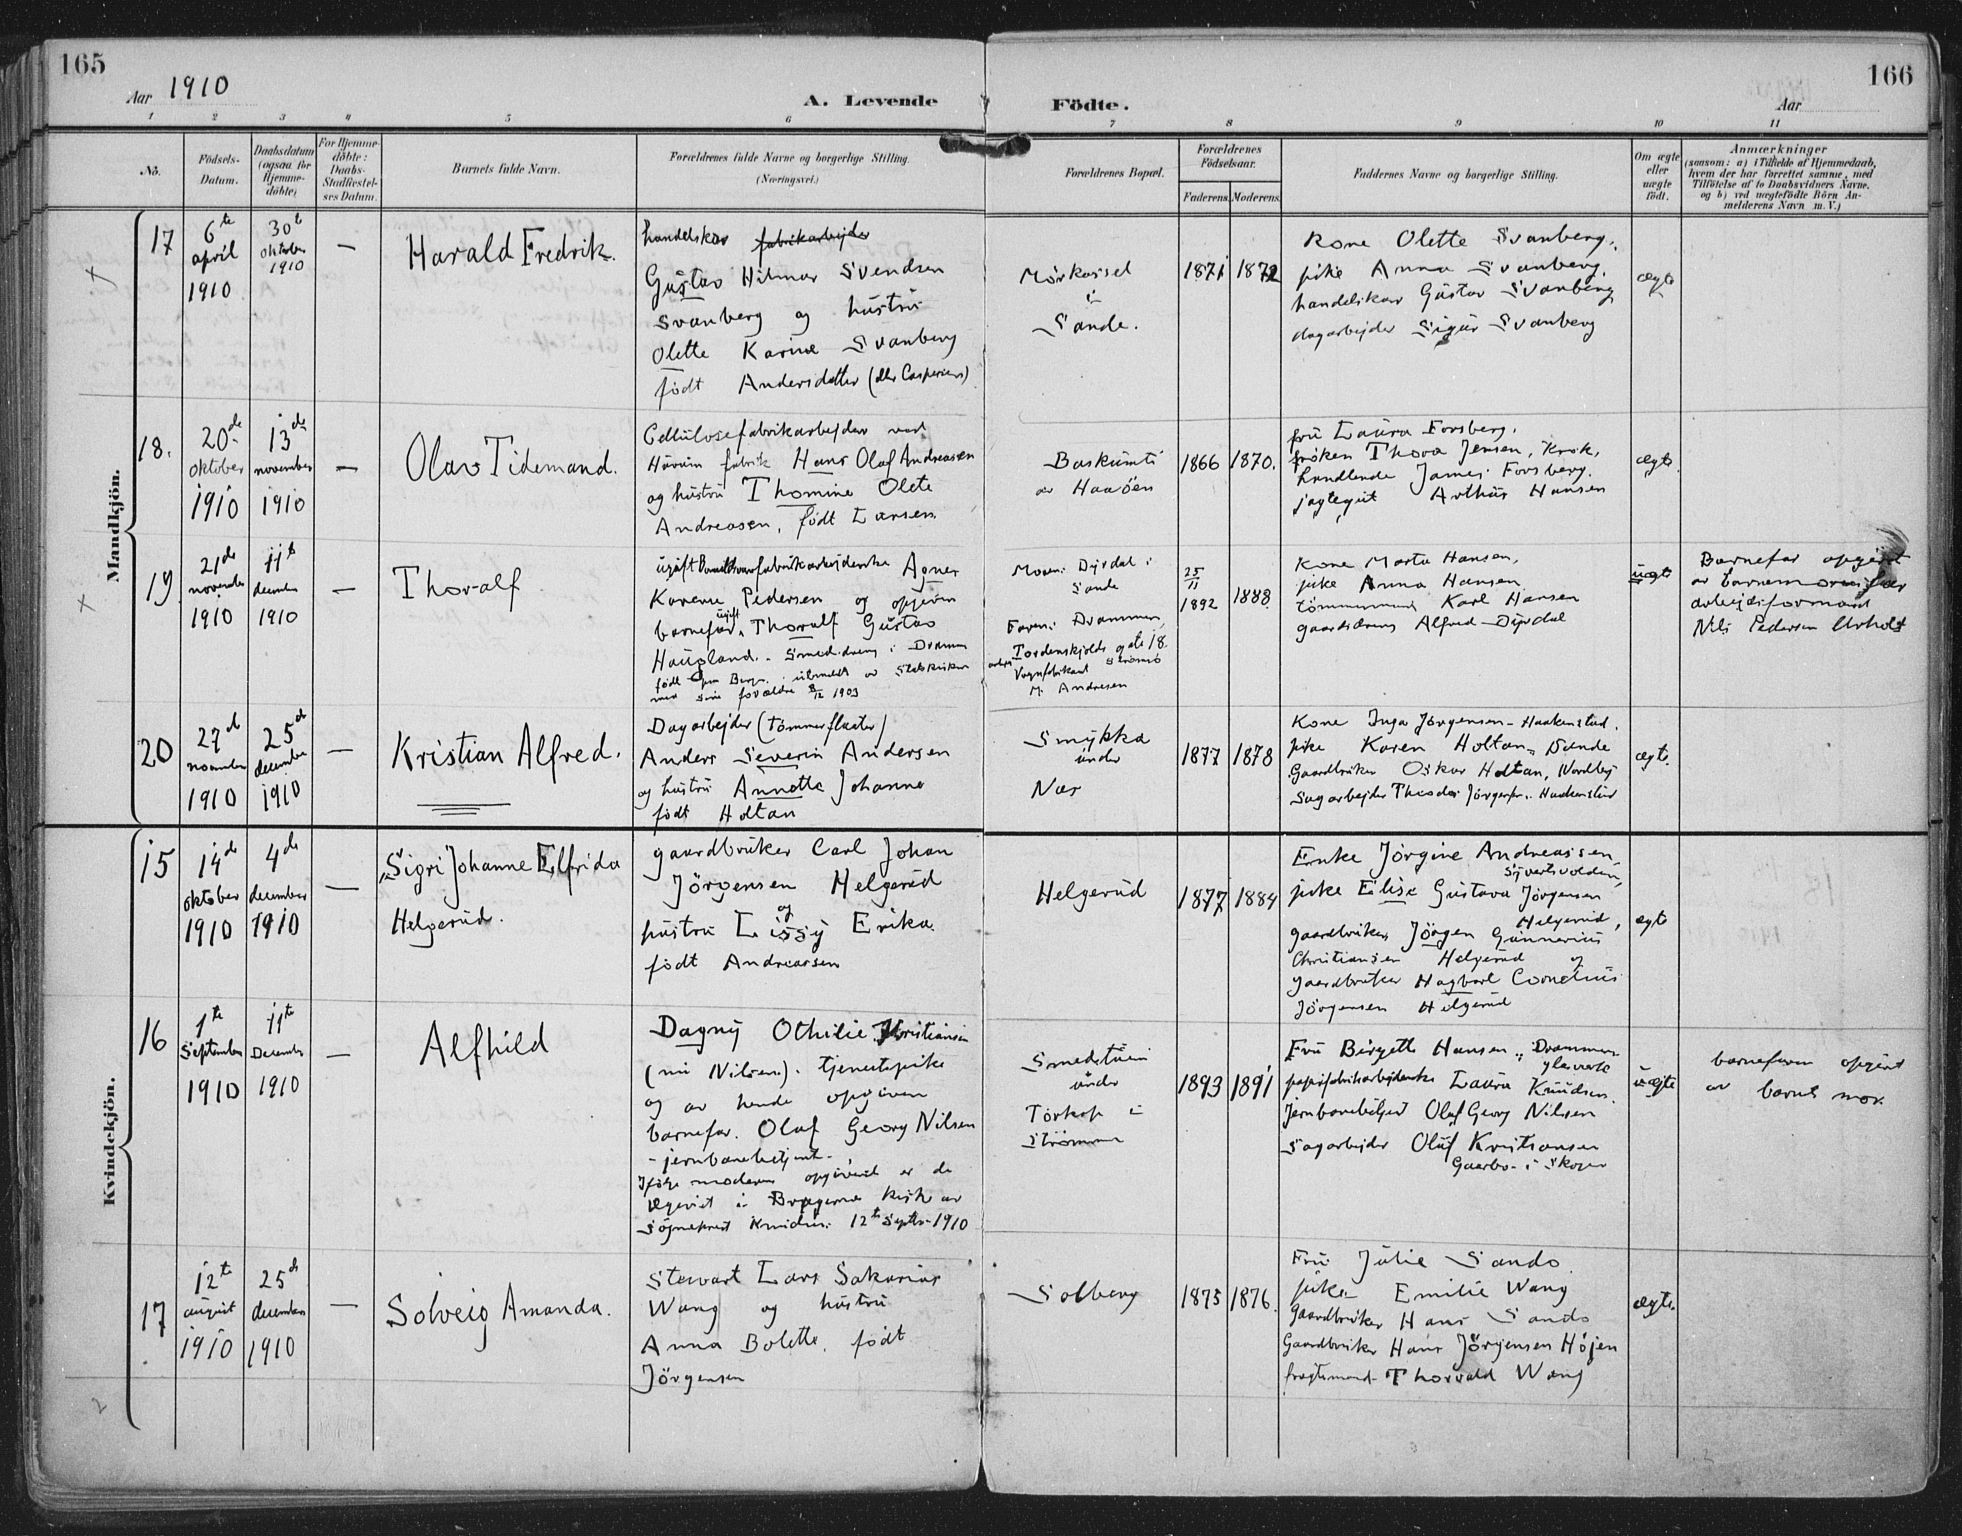 165
Aar 1910
A. Levende
1
2
3
4
5
6
No.
Födsels-
Datum.
Daabsdatum
(ogsaa for
Hjemme-
döbte)
For Hjemme-
döbte:
Daabs-
Stadfæstel-
ses Datum.
Barnets fulde Navn.
Forældrenes fulde Navne og borgerlige Stilling.
(Næringsvei.)
Mandkjön.
17
6te
april
1910
30te
oktober
1910
—
Harald Fredrik.
handelskar fabrikarbejder
Gustav Hilmar Svendsen
Svanberg og hustru
Olette Karine Svanberg
født Andersdatter
18.
20de
oktober
1910
13de
november
1910
—
Olav Tidemand.
Cellulosefabrikarbejder ved
fabrik Hans Olaf Andreasen
og hustru Thomine Olete
Andreasen, født Larsen.
19
21de
november
1910
11te
december
1910
—
Thoralf
ugift Agnes
Pedersen og opgiven
barnefar ugift Thoralf Gustav
Haugland. Smededreng i
født
med sine forældre 8/12 1903
20
27de
november
1910
25de
december
1910
—
Kristian Alfred.
Dagarbejder (tømmerfløter)
Anders Severin Andersen
og hustru Annette Johanne
født Holtan
Kvindekjön.
15
14de
oktober
1910
4de
december
1910
—
Sigri Johanne Elfrida
Helgerud.
gaardbruker Carl Johan
Jörgensen Helgerud
og
hustru Lissy Erika
født Andreassen
16
1te
September
1910
11te
December
1910
—
Alfhild
Dagny Othilie Kristiansen
(nu Nilsen). tjenestepike
og av hende opgiven
barnefar. Olaf Georg Nilsen
- jernbanebetjent -
Ifölge moderens opgivend er de
i Bragernes kirke av
Sogneprest 12te Septbr 1910
17
12te
august
1910
25de
december
1910
—
Solveig Amanda.
Stewart Lars Sakarias
Wang og hustru
Anna Bolette, født
Jörgensen
166
Födte.
Aar
7
8
9
10
11
Forældrenes Bopæl.
Forældrenes
Födselsaar.
Faderens.
Moderens.
Faddernes Navne og borgerlige Stilling.
Om ægte
eller
uægte
födt.
Anmærkninger
(saasom: a) i Tilfælde af Hjemmedaab,
hvem der har forrettet samme, med
Tilföielse af to Daabsvidners Navne.
og b) ved uægtefödte Börn An-
melderens Navn m. V.)
i
Sande.
1871
1872
Kone Olette Svanberg,
pike Anna Svanberg,
handelskar Gustav Svanberg
dagarbejder Sigur Svanberg
ægte
av Haaöen
1866
1870.
fru Laura Forsberg,
frøken Thora Jensen, Krok,
handlende James Forsberg,
Arthur Hansen
ægte.
Moren: Dyrdal i
Sande
Faren: Drammen,
Tordenskjolds gate 18.
Vognfabrikant Strømsö
M. Andresen
25/11
1892
1888
Kone Marta Hansen,
pike Anna Hansen
tømmermand Karl Hansen
gaardsdreng Alfred Dyrdal
uægte
Barnefar opgivet
av barnemorens far
arbejdsformand
Nils Pedersen
Smykka
under
Nær
1877
1878
Kone Inga Jørgensen - Haakenstad.
pike Karen Holtan, Sande
Gaardbruker Oskar Holtan, Nordby
Sagarbejder Theodor Jörgensen. Haakenstad
ægte.
Helgerud
1877
1884
Enke Jörgine Andreassen,
Syvertsvolden,
pike Elise Gustava Jörgensen
Helgerud,
gaardbruker Jörgen Gunnerius
Christiansen Helgerud og
gaardbruker Hagbart Cornelius
Jörgensen Helgerud
ægte
under
i
Strömmen
1893
1891
Fru Birgette Hansen, Drammens
glasverk
papirfabrikarbejderske Laura Knudsen.
jernbanebetjent Olaf Georg Nilsen
Sagarbejder Oluf Kristiansen
i Skoger
uægte
barnefaren opgivet
av barnets mor.
Solberg
1875
1876.
Fru Julie Sando
pike Emilie Wang
Gaardbruker Hans Sando
Gaardbruker Hans Jörgensen Höjen
fragtemand Thorvald Wang
ægte.